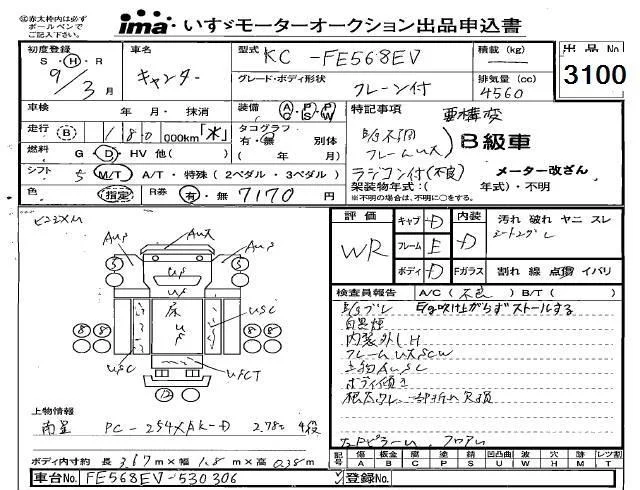 ㊟赤太枠内は必ず
ボールペンで
ご記入下さい。
ima いすゞモーターオークション出品申込書
初度登録 S・H・R 9/3月
車名 キャンター
型式 KC-FE568EV
グレード・ボディ形状 クレーン付
積載(kg)
排気量(cc) 4560
出品No 3100
車検 年 月・抹消
装備 AC・PS・PW
特記事項
要構変
E/G不調
フレームUX
B級車
ラジコン付(不良)
メーター改ざん
走行 B 180 000km「水」
タコグラフ 有・無 別体
( 年 月)
燃料 G・D・HV 他( )
シフト 5 M/T・A/T・特殊(2ペダル・3ペダル)
架装物年式:( 年式)・不明
※不明の場合は、不明に○をする。
色 指定 R券 有・無 7170円
評価 WR
キャブ D
フレーム E
ボディ D
内装 D
Fガラス
汚れ 破れ ヤニ スレ
シートコゲ L
割れ 線 点傷 イバリ
AUS
AUX
AUS
5
5
US
UF
床
UF
USC
USC
UFCT
8 8
8 8
12
検査員報告 A/C(不良) B/T( )
E/Gブレ E/G吹け上がらずストールする
白黒煙
内装外しH
フレームUXSCW
上物AUSC
ボディ傾き
左Pピラーu, フロアu
上物情報
南星 PC-254XAK-D 2.78t 4段
ボディ内寸約 長 3.67m×幅 1.8m×高 0.38m
記号
傷 A
板金 B
腐 C
塗 P
錆 S
凹凸曲 U
波 W
穴 H
時 M
レツ割 T
車台No. FE568EV-530306
登録No.